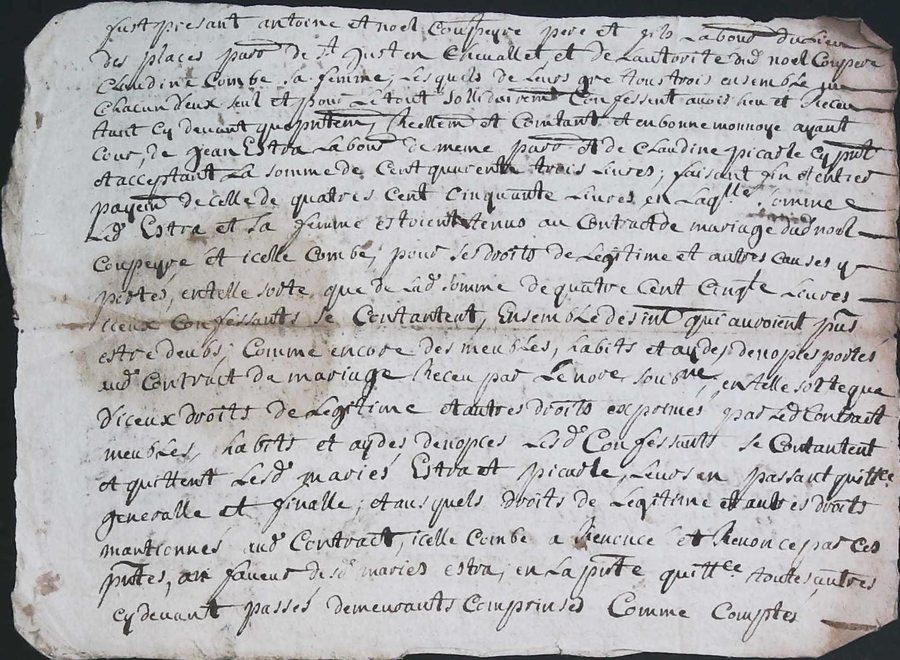 fust présant antoine et noel Coupeyre pere et filz Labour du Lieu
des places parr de st Just en Chevallet, et de Lautorité dud noel Coupere
Claudine Combe sa femme, Lesquels de Leurs gré tous trois ensemble
Chacun deux seul et pour Le tout sollidairemt Confessent avoir heu et Receu
tant Cy devant que pntem, Reellem et Comtant et en bonne monnoye ayant
Cour, de Jean Estra Labour de meme parr et de Claudine picarle Cy pnt
et acceptant La somme de Cent quarente trois Livres; faisant fin et entier
payem de celle de quatres Cent Cinquante Livres en Laqlle somme
Led Estra et sa femme estoient tenus au Contract de mariage dud noel
Coupeyre et icelle Combe, pour ses droits de Legitime et autres Causes y
portés, en telle sorte que de Lad somme de quatre Cent Cinqte Livres
iceux Confessants se Contantent, Ensemble des int qui auroient pus
estre deubs; Comme encore des meubles, habits et aydes de nopces portés
aud Contract de mariage Receu par Le nore soubne, en telle sorte que
d'iceux droits de Legitime et autres droits exprimes par Led Contract
meubles, habits et aydes de nopces Lesd Confessants se Contantent
et quittent Lesd mariés Estra et picarle, Leurs en passant quittce
generalle et finalle; et ausquels droits de Legitime et autres droits
mantionnés aud Contract, icelle Combe a Renoncé et Renonce par Ces
pntes, an faveur desd mariés estra; en La pnte quittce toutes autres
Cy devant passés demeurants Comprinses Comme Comptes